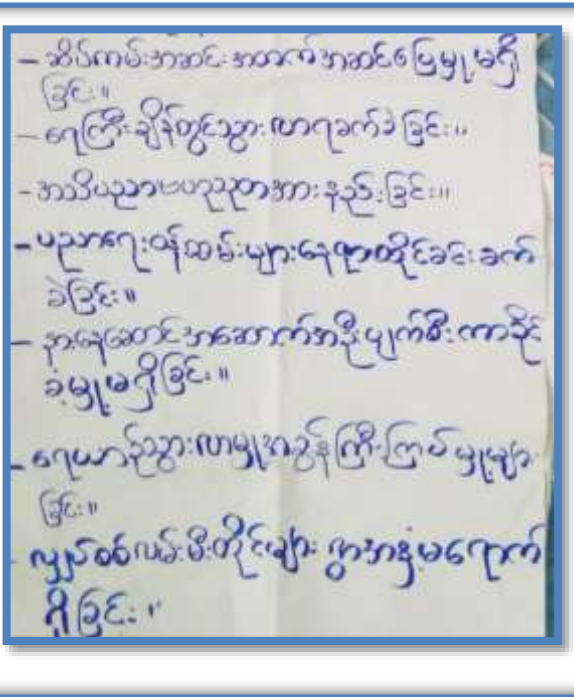 - ဆိပ်ကမ်းအဆင်းအတက်အဆင်ပြေမှုမရှိ
ခြင်း။
- ရေကြီးချိန်တွင်သွားလာရခက်ခဲခြင်း။
- အသိပညာဗဟုသုတအားနည်းခြင်း။
- ပညာရေးဝန်ထမ်းများနေထိုင်ခင်းခက်
ခဲခြင်း။
- နားနေဆောင်အဆောက်အဦးပျက်စီးကာခိုင်
ခံ့မှုမရှိခြင်း။
- ရေယာဉ်သွားလာမှုအခွန်ကြီးကြပ်မှုများ
ခြင်း။
- လျှပ်စစ်လမ်းမီးတိုင်များ ရွာအနှံ့မရောက်
ရှိခြင်း။